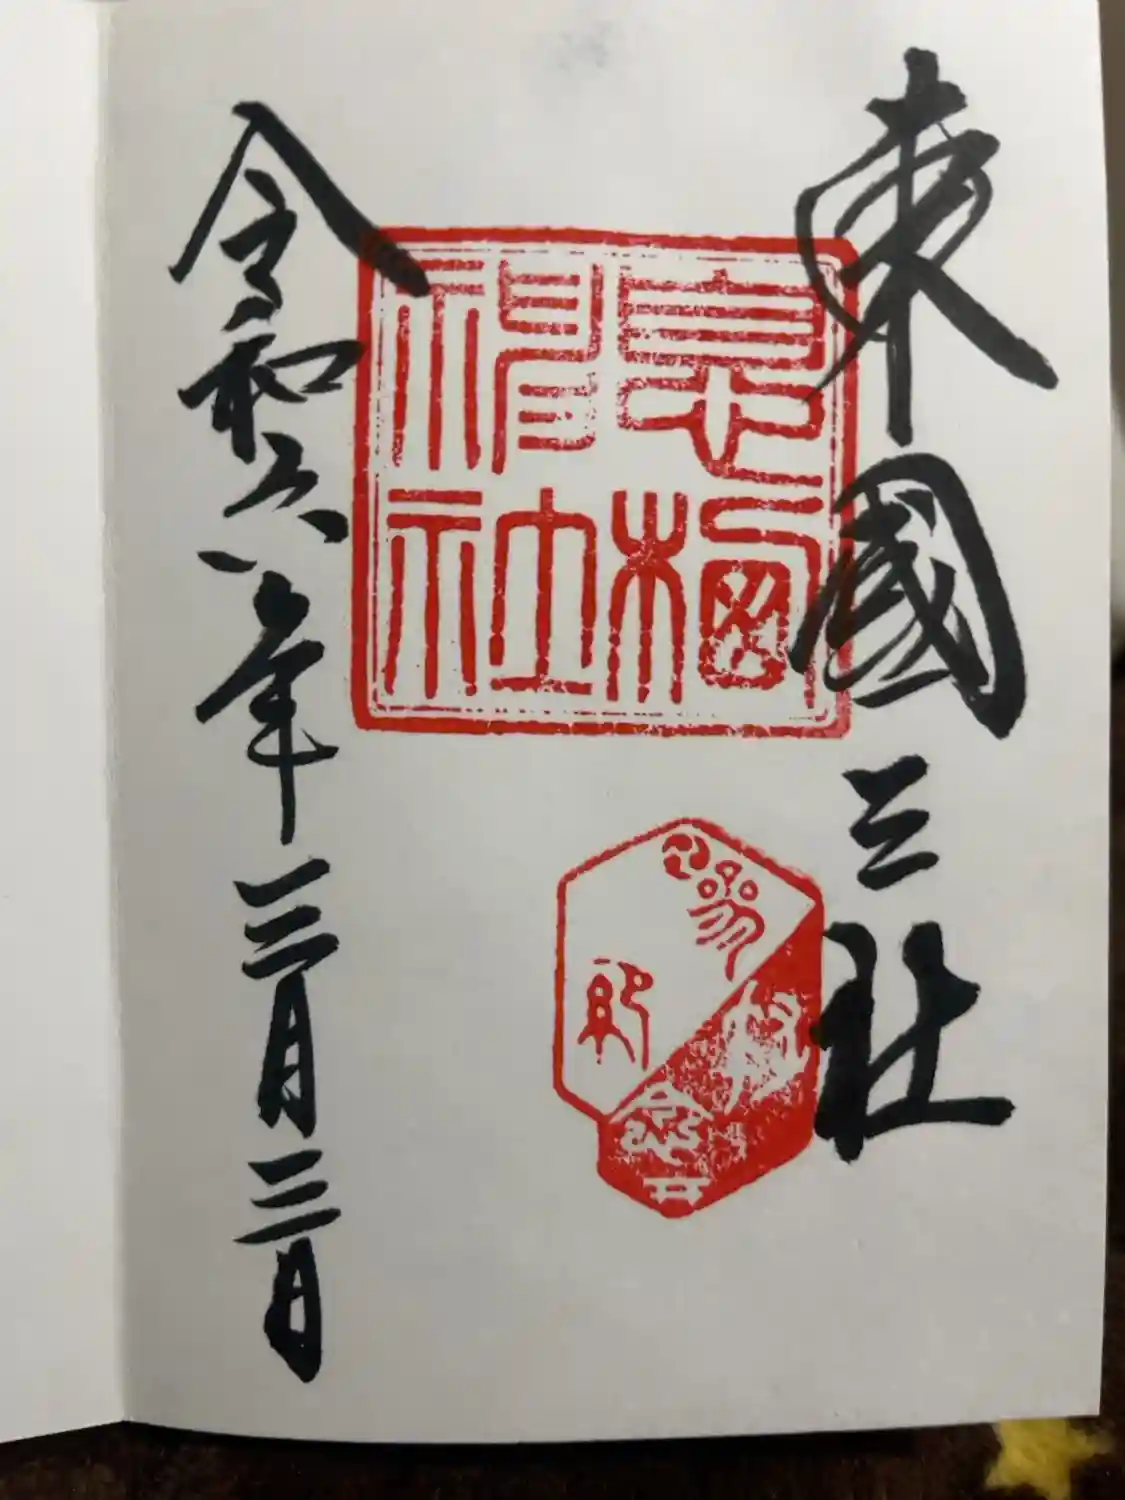 東國三社
息栖神社
令和六年三月三日